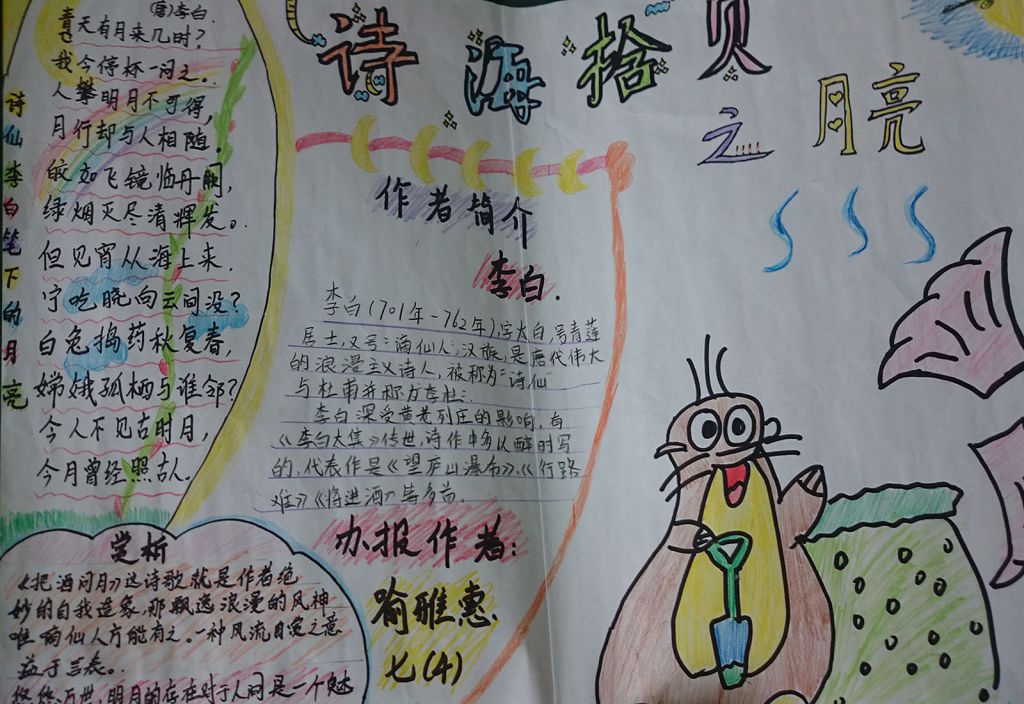 诗海拾贝
之月亮
诗仙李白笔下的月亮
(唐)李白.
青天有月来几时?
我今停杯一问之.
人攀明月不可得,
月行却与人相随.
皎如飞镜临丹阙,
绿烟灭尽清辉发.
但见宵从海上来,
宁吃晓向云间没?
白兔捣药秋复春,
嫦娥孤栖与谁邻?
今人不见古时月,
今月曾经照古人.
赏析
《把酒问月》这诗歌就是作者绝
妙的自我造象,那飘逸浪漫的风神
唯有仙人方能有之.一种风流自赏之意
益于言表.
悠悠万世,明月的存在对于人间是一个魅
作者简介
李白.
李白(701年-762年),字太白,号青莲
居士,又号"谪仙人",汉族,是唐代伟大
的浪漫主义诗人,被称为"诗仙"
与杜甫并称为李杜.
李白深受黄老列庄的影响,有
《李白太集》传世,诗作中多以醉时写
的,代表作是《望庐山瀑布》、《行路
难》《将进酒》等多首.
办报作者:
喻雅惠
七(4)